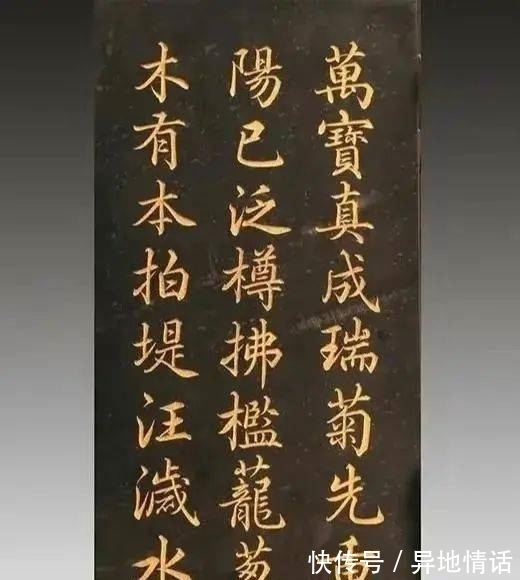 萬寶真成瑞菊先重
陽已泛樽拂檻蘢
木有本拍堤汪濊水
快传号 / 异地情话